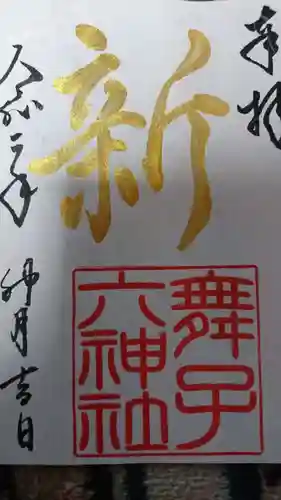 奉拝
新
舞子
六神社
令二年
卯月吉日